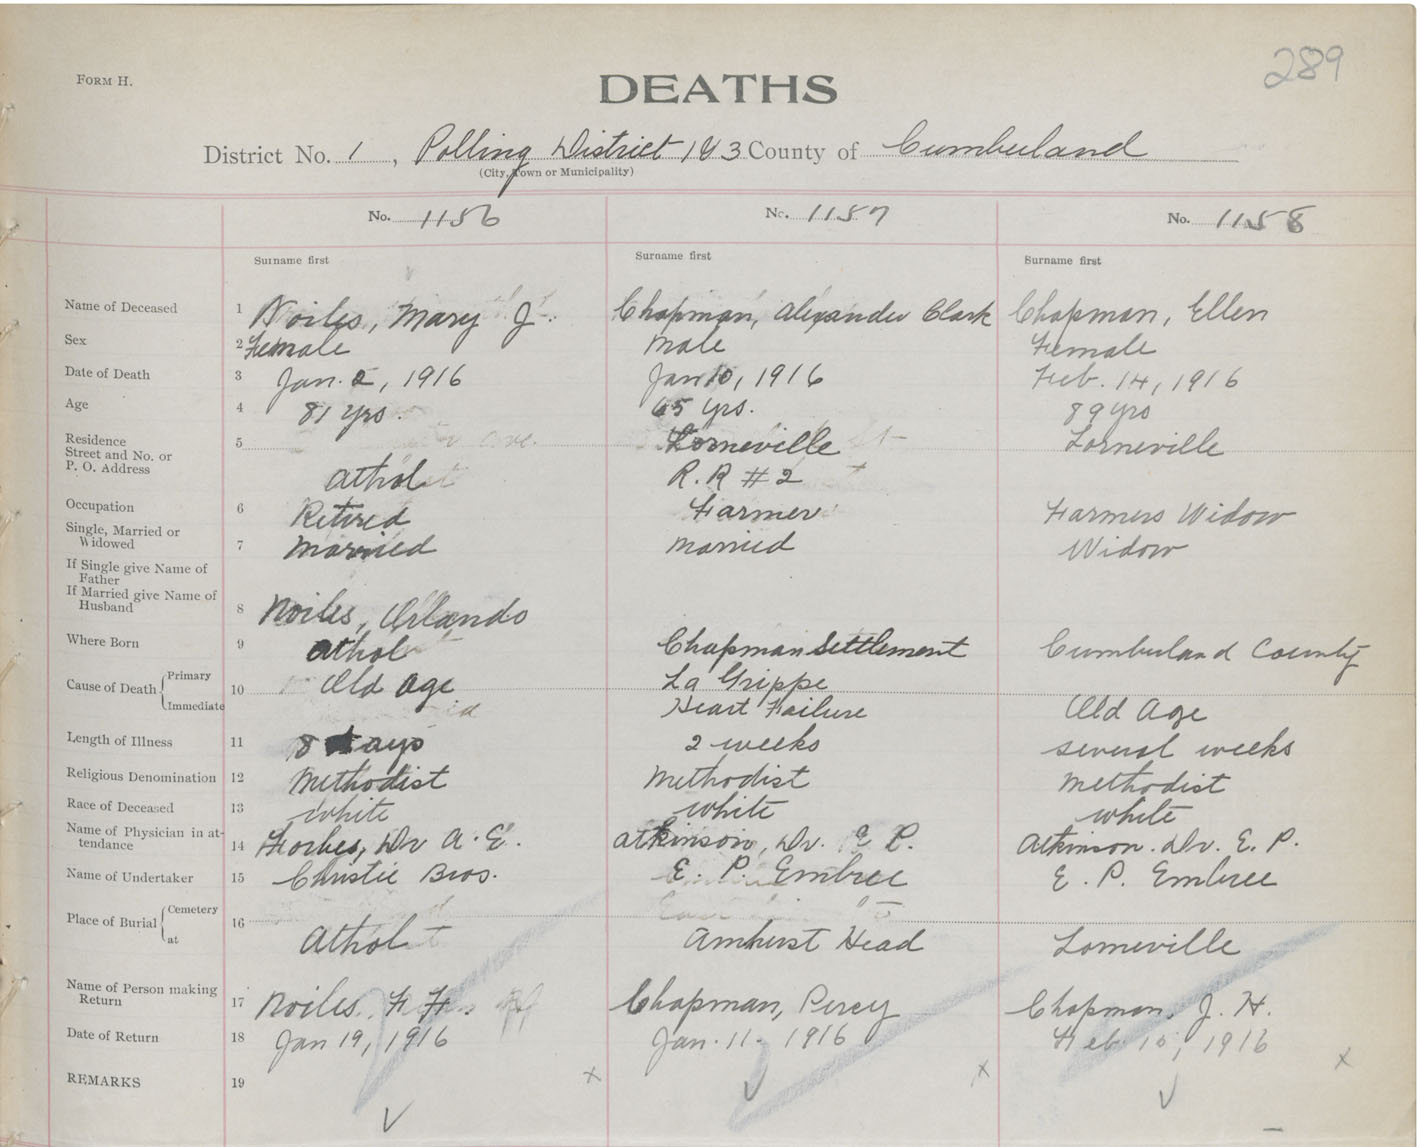 289
FORM H.
DEATHS
District No. 1, Polling District 1 & 3 County of Cumberland
(City, Town or Municipality)
No. 1156 No. 1157 No. 1158
Surname first Surname first Surname first
Name of Deceased 1 Noiles, Mary J. Chapman, Alexander Clark Chapman, Ellen
Sex 2 Female Male Female
Date of Death 3 Jan. 2, 1916 Jan 10, 1916 Feb. 14, 1916
Age 4 81 yrs. 65 yrs. 89 yrs
Residence 5 Lorneville Lorneville
Street and No. or
P. O. Address Athol R.R # 2
Occupation 6 Retired Farmer Farmers Widow
Single, Married or
Widowed 7 Married Married Widow
If Single give Name of
Father
If Married give Name of
Husband 8 Noiles, Orlando
Where Born 9 Athol Chapman Settlement Cumberland County
Cause of Death Primary 10 Old Age La Grippe
Immediate Heart Failure Old Age
Length of Illness 11 8 Days 2 weeks several weeks
Religious Denomination 12 Methodist Methodist Methodist
Race of Deceased 13 White White White
Name of Physician in at-
tendance 14 Forbes, Dr A. E. Atkinson, Dr. E. P. Atkinson. Dr. E. P.
Name of Undertaker 15 Christie Bros. E. P. Embree E. P. Embree
Place of Burial Cemetery 16
at Athol Amherst Head Lorneville
Name of Person making
Return 17 Noiles, Chapman, Percy Chapman, J. H.
Date of Return 18 Jan 19, 1916 Jan. 11. 1916 Feb. 15, 1916
REMARKS 19 x x x